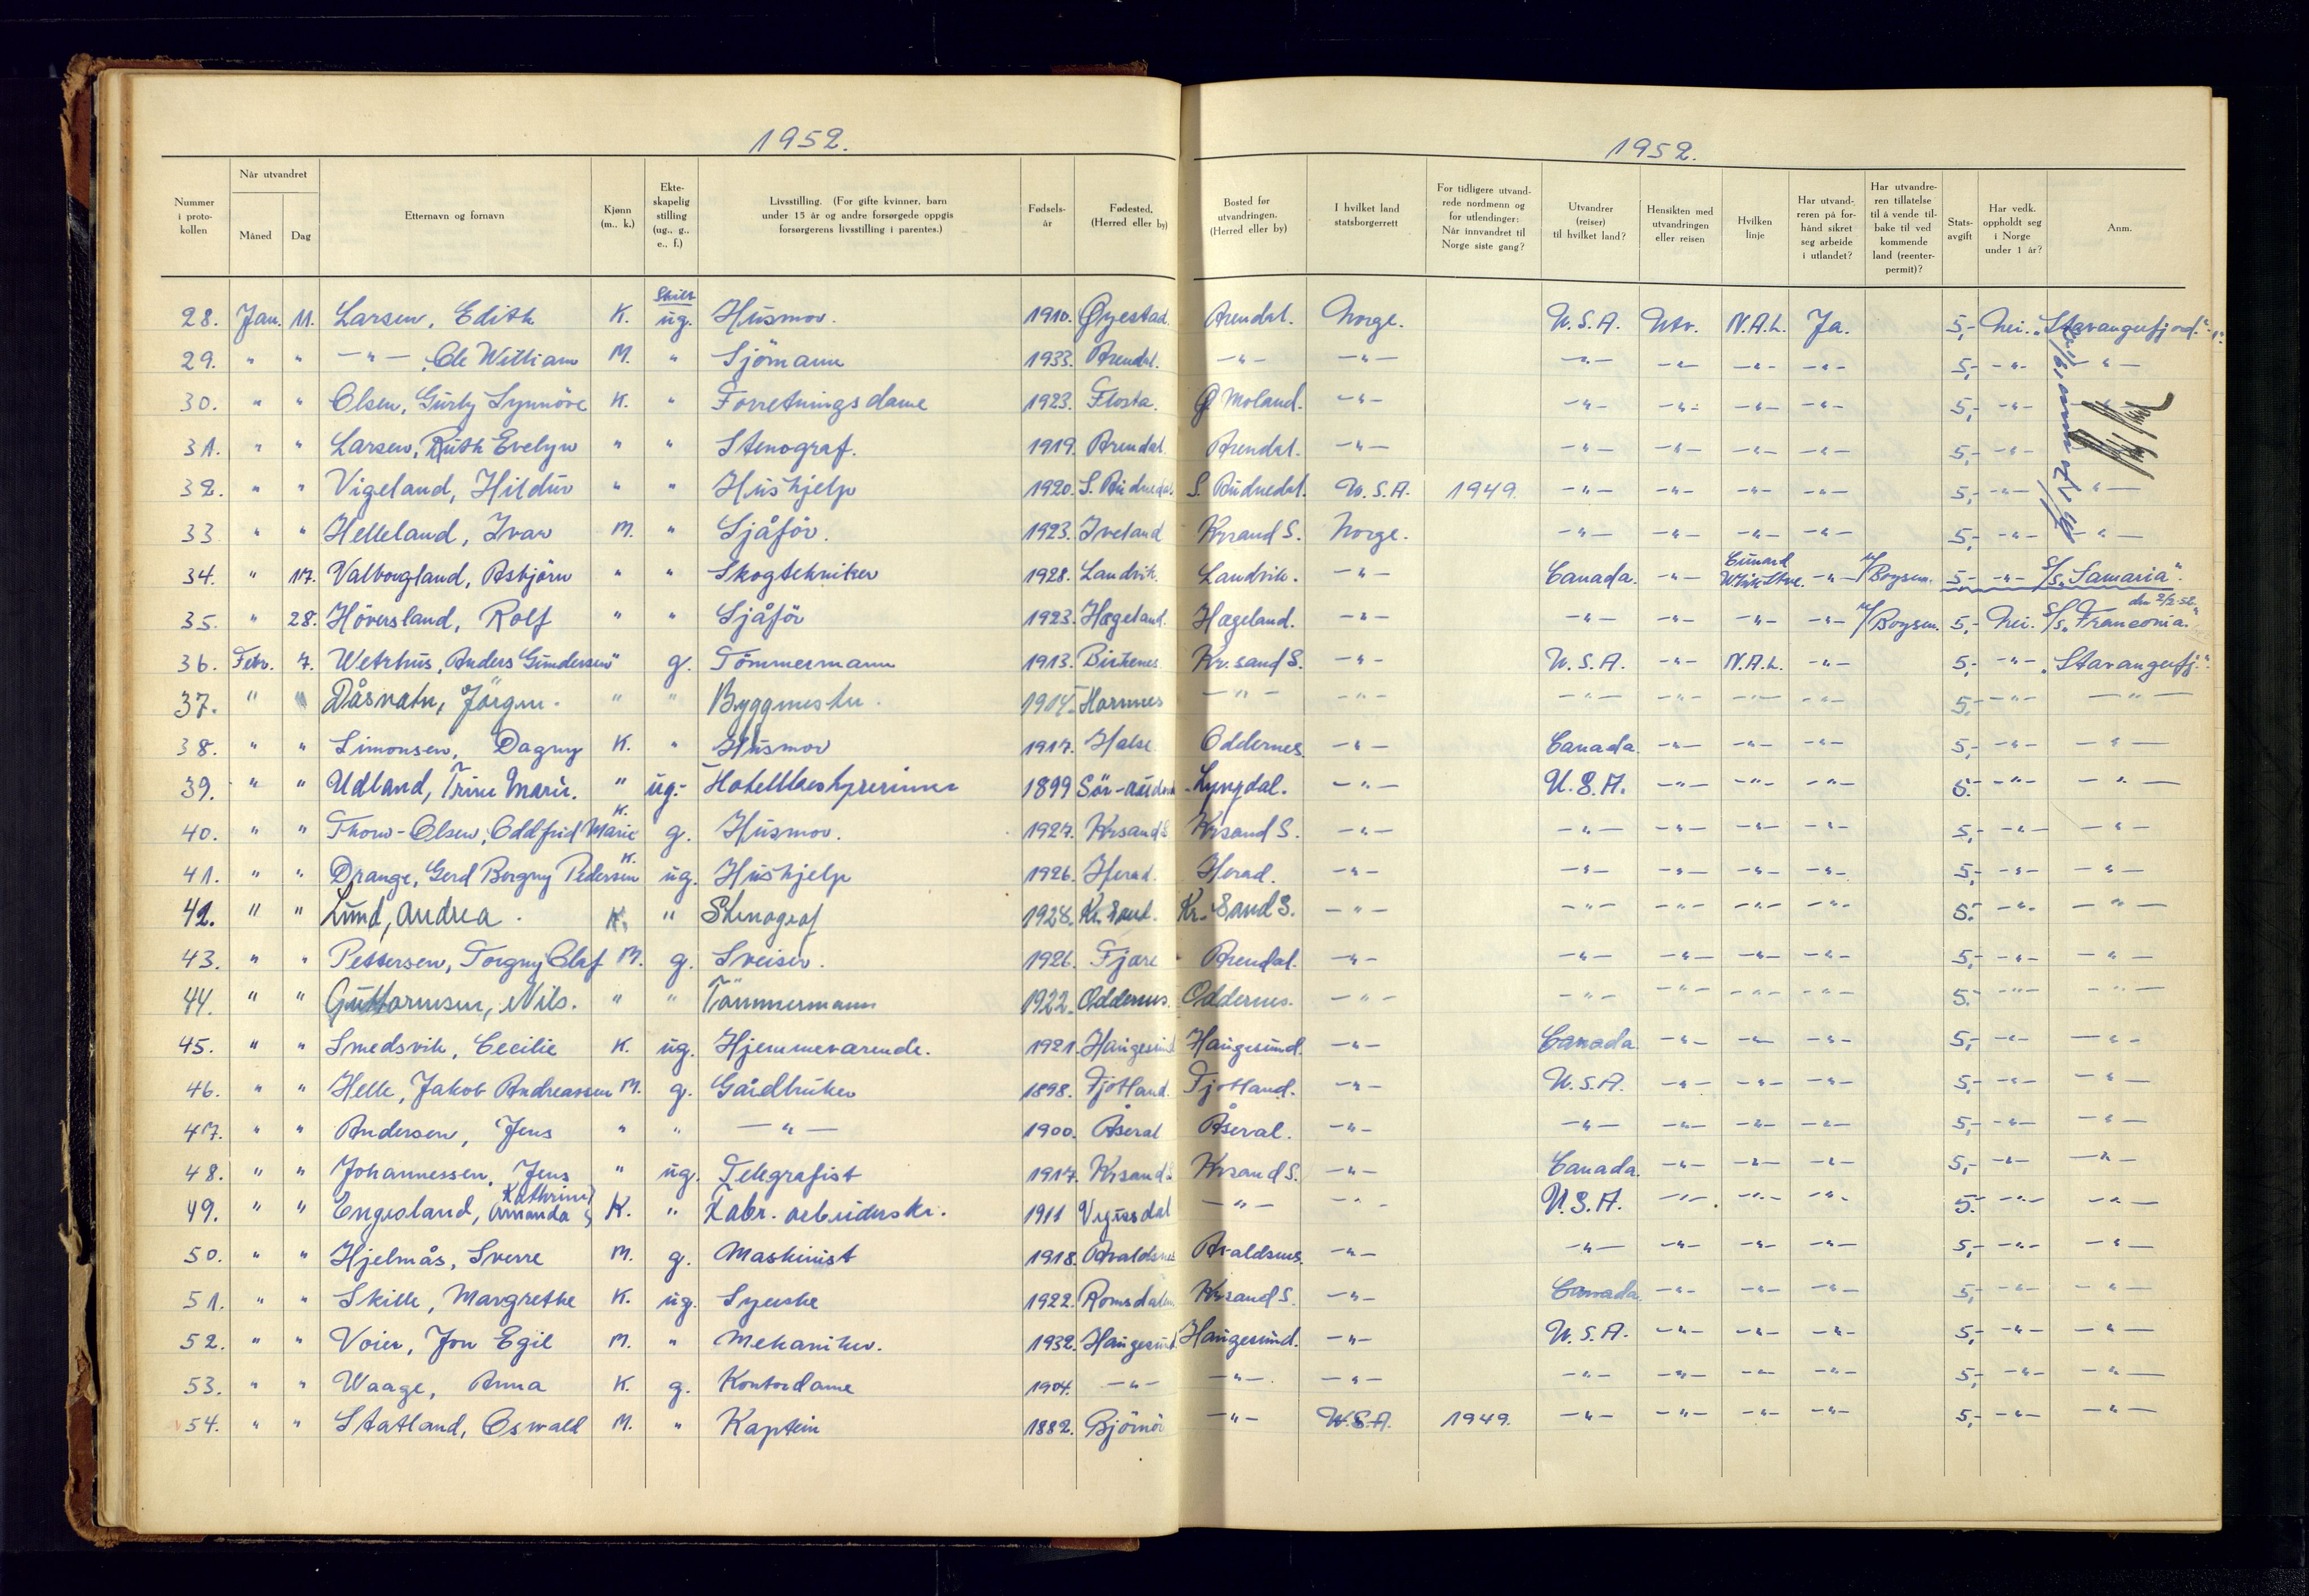 1952.
1952.
Nummer i protokollen | Når utvandret | Måned | Dag | Etternavn og fornavn | Kjønn (m., k.) | Ekteskapelig stilling (ug., g., e., f.) | Livsstilling. (For gifte kvinner, barn under 15 år og andre forsørgede oppgis forsørgerens livsstilling i parentes.) | Fødselsår | Fødested, (Herred eller by) | Bosted før utvandringen, (Herred eller by) | I hvilket land statsborgerrett | For tidligere utvandrede nordmenn og for utlendinger: Når innvandret til Norge siste gang? | Utvandrer (reiser) til hvilket land? | Hensikten med utvandringen eller reisen | Hvilken linje | Har utvandreren på forhånd sikret seg arbeide i utlandet? | Har utvandreren tillatelse til å vende tilbake til ved kommende land (reenterpermit)? | Statsavgift | Har vedk. oppholdt seg i Norge under 1 år? | Anm.
28. Jan. 11. Larsen, Edith K. Skilt ug. Husmor. 1910. Øyestad. Arendal. Norge. U.S.A. Utv. N.A.L. Ja. 5,- Nei. "Stavangerfjord."
29. " " -"- , Ole William M. " Sjömann 1933. Arendal. -"- -"- -"- -"- -"- -"- 5,- -"- -"-
30. " " Olsen, Gurly Synnöve K. " Forretningsdame 1923. Flosta. Ø Moland. -"- -"- -"- -"- -"- 5,- -"- -"-
31. " " Larsen, Ruth Evelyn " " Stenograf. 1919. Arendal. Arendal. -"- -"- -"- -"- -"- 5,- -"-
32. " " Vigeland, Hildur " " Hushjelp 1920. S. Audnedal. S. Audnedal. U.S.A. 1949. -"- -"- -"- -"- 5,- -"- -"-
33 " " Helleland, Ivar M. " Sjåför. 1923. Iveland Krsand S. Norge. -"- -"- -"- -"- 5,- -"- -"-
34. " 17. Valborgland, Asbjörn " " Skogtekniker 1928. Landvik. Landvik. -"- Canada. -"- Cunard White Star. -"- Boysen. 5,- -"- S/s "Samaria".
35. " 28. Höversland, Rolf " " Sjåför 1923. Hægeland. Hægeland. -"- -"- -"- -"- -"- Boysen. 5,- Nei. S/s "Franconia" den 2/2-52.
36. Febr. 7. Wetrhus, Anders Gundersen " g. Tömmermann 1913. Birkenes Kr.sand S. -"- U.S.A. -"- N.A.L. -"- 5,- -"- "Stavangerfj."
37. " " Dåsvatn, Jörgen. " " Byggmester. 1914. Hornnes -"- -"- -"- -"- -"- -"- 5,- -"- -"-
38. " " Simonsen, Dagny K. " Husmor 1917. Halse Oddernes. -"- Canada. -"- -"- -"- 5,- -"- -"-
39. " " Udland, Trine Marie. " ug. Hotellbestyrerinne 1899 Sör-Audnedal Lyngdal. -"- U.S.A. -"- -"- -"- 5.- -"- -"-
40. " " Thom-Olsen, Oddfrid Marie K. g. Husmor. 1927. Krsand S Krsand S. -"- -"- -"- -"- -"- 5,- -"- -"-
41. " " Drange, Gerd Borgny Pedersen K. ug. Hushjelp 1926. Herad. Herad. -"- -"- -"- -"- -"- 5,- -"- -"-
42. " " Lund, Andrea. K. " Stenograf 1928. Kr.sand. Kr.Sand S. -"- -"- -"- -"- -"- 5.- -"- -"-
43. " " Pettersen, Torgny Olaf M. g. Sveiser. 1926. Fjære Arendal. -"- -"- -"- -"- -"- 5,- -"- -"-
44. " " Guttormsen, Nils. " " Tömmermann 1922. Oddernes. Oddernes. -"- -"- -"- -"- -"- 5.- -"- -"-
45. " " Smedsvik, Cecilie K. ug. Hjemmeværende. 1921. Haugesund Haugesund. -"- Canada -"- -"- -"- 5,- -"- -"-
46. " " Helle, Jakob Andreassen M. g. Gårdbruker 1898. Fjotland. Fjotland. -"- U.S.A. -"- -"- -"- 5,- -"- -"-
47. " " Andersen, Jens " " -"- 1900. Åseral Åseral. -"- -"- -"- -"- -"- 5,- -"- -"-
48. " " Johannessen, Jens " ug. Telegrafist 1917. Krsand S Krsand S. -"- Canada. -"- -"- -"- 5,- -"- -"-
49. " " Engesland, Kathrine Amanda K. " Fabr.arbeiderske. 1911 Vegusdal -"- -"- U.S.A. -"- -"- -"- 5.- -"- -"-
50. " " Hjelmås, Sverre M. g. Maskinist 1918. Avaldsnes Avaldsnes. -"- -"- -"- -"- -"- 5,- -"- -"-
51. " " Skille, Margrethe K. ug. Syerske 1922. Romsdalen Krsand S. -"- Canada. -"- -"- -"- 5,- -"- -"-
52. " " Voier, Jon Egil M. " Mekaniker. 1932. Haugesund Haugesund. -"- U.S.A. -"- -"- -"- 5,- -"- -"-
53. " " Waage, Anna K. g. Kontordame 1904. -"- -"- -"- -"- -"- -"- -"- 5,- -"- -"-
54. " " Statland, Oswald M. " Kaptein 1882. Björnör -"- U.S.A. 1949. -"- -"- -"- -"- 5,- -"- -"-